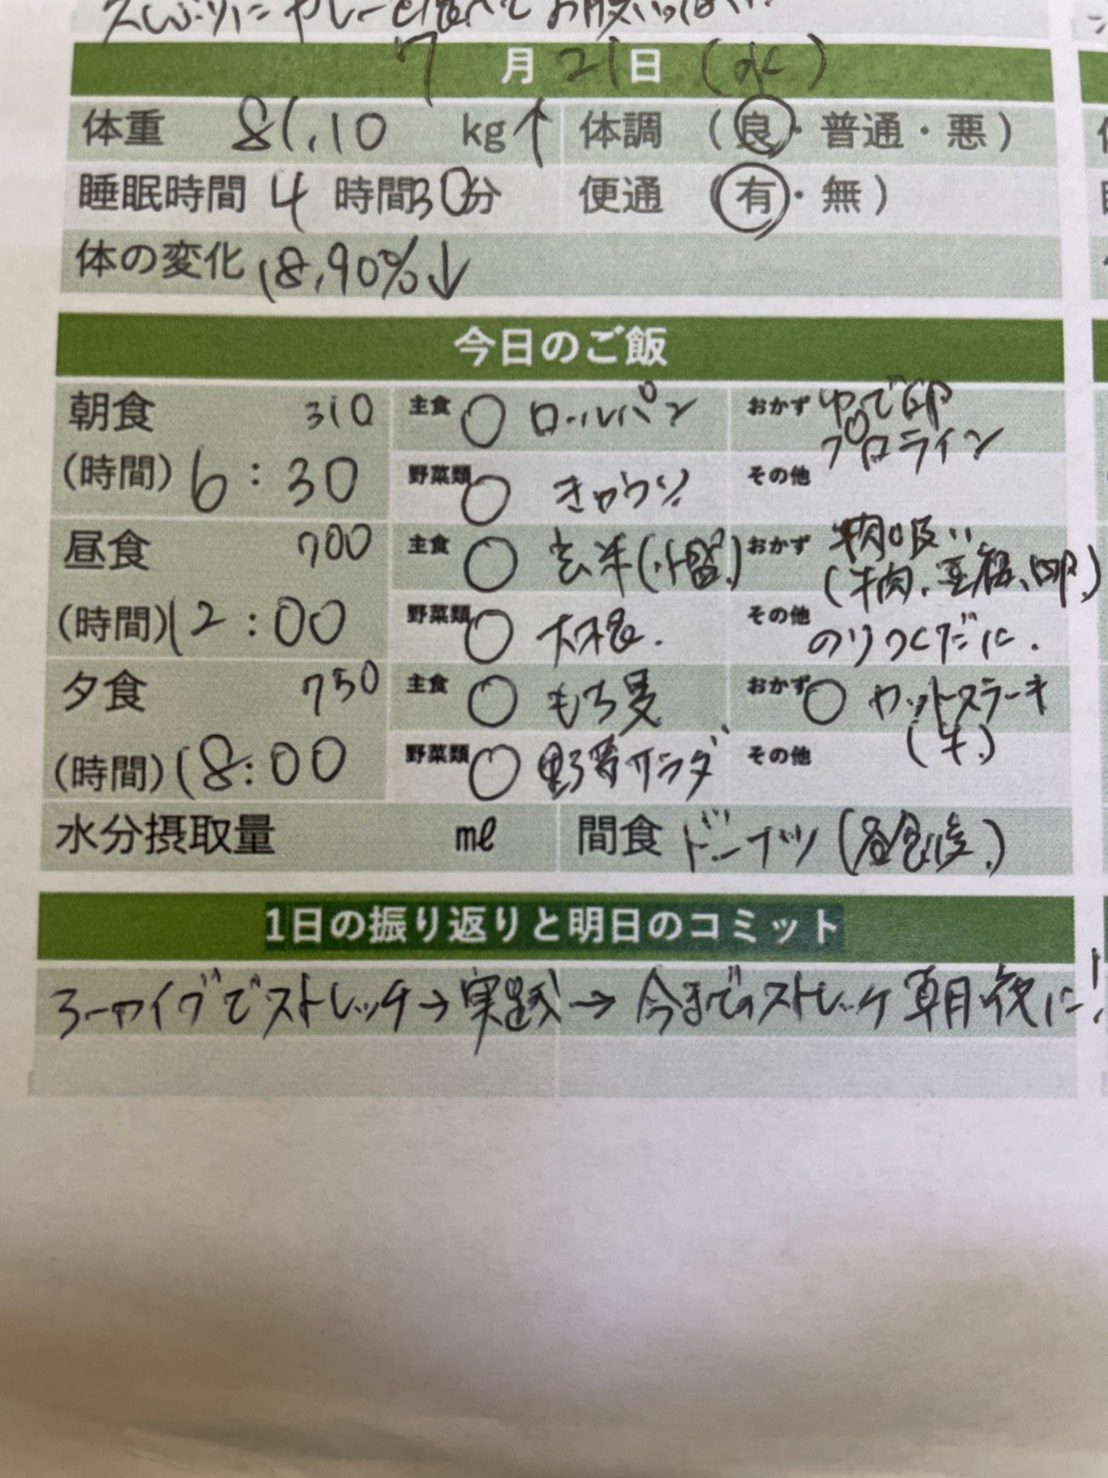 7月21日(水)
体重 81.10 kg↑ 体調 (良・普通・悪)
睡眠時間 4 時間30分 便通 (有・無)
体の変化 18.90%↓
今日のご飯
朝食 310 主食 〇 ロールパン おかず ゆで卵
プロテイン
(時間) 6:30 野菜類 〇 きゅうり その他
昼食 700 主食 〇 玄米(小盛) おかず 肉吸い
(牛肉、豆腐、卵)
(時間) 12:00 野菜類 〇 大根. その他 のりつくだに.
夕食 750 主食 〇 もち麦 おかず 〇 カットステーキ
(牛)
(時間) 18:00 野菜類 〇 野菜サラダ その他
水分摂取量 ml 間食 ドーナツ (昼食後)
1日の振り返りと明日のコミット
ストレッチ→実践→今までのストレッチ朝夜に